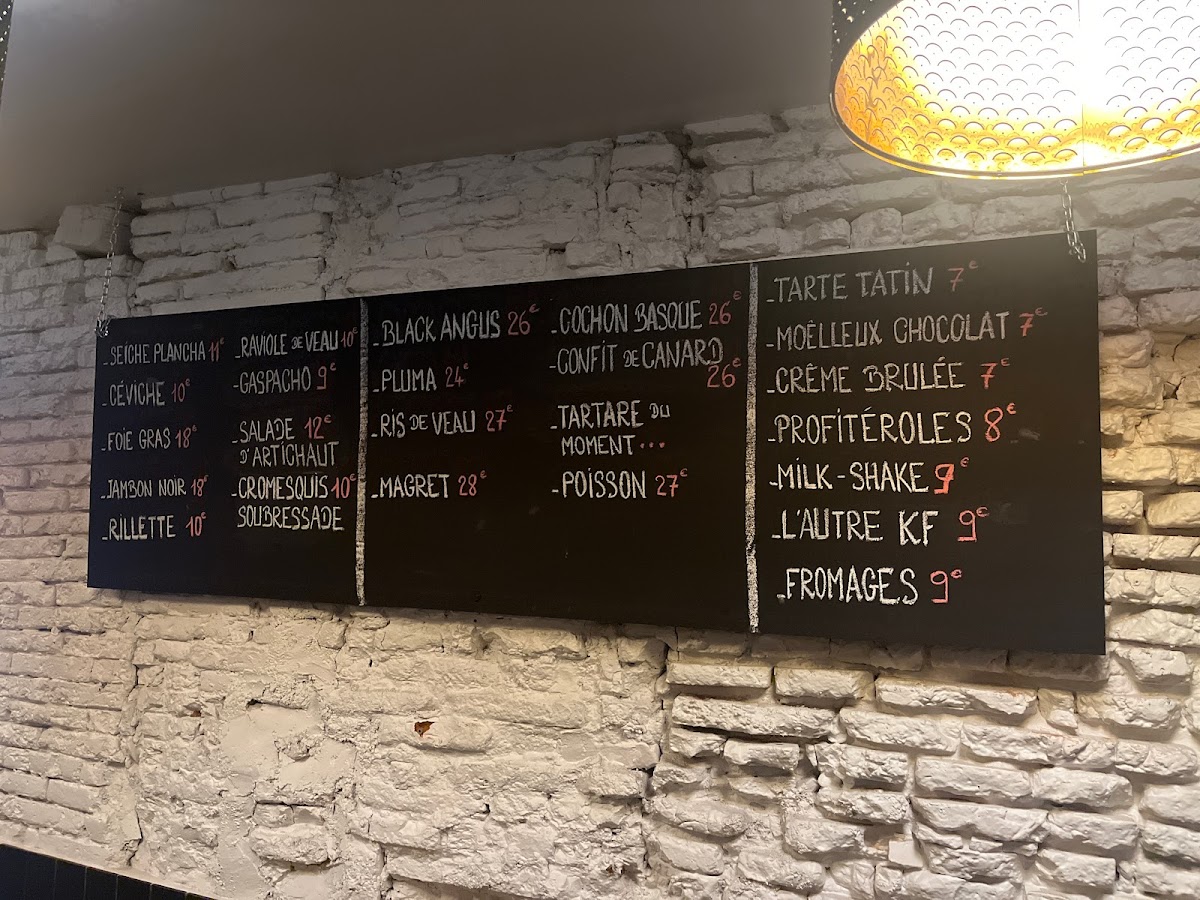 -SEÏCHE PLANCHA 11€
-CÉVICHE 10€
-FOIE GRAS 18€
-JAMBON NOIR 18€
-RILLETTE 10€
-RAVIOLE DE VEAU 10€
-GASPACHO 9€
-SALADE 12€
D'ARTICHAUT
-CROMESQUIS 10€
SOUBRESSADE
-BLACK ANGUS 26€
-PLUMA 24€
-RIS DE VEAU 27€
-MAGRET 28€
-COCHON BASQUE 26€
-CONFIT DE CANARD
26€
-TARTARE DU
MOMENT...
-POISSON 27€
-TARTE TATIN 7€
-MOËLLEUX CHOCOLAT 7€
-CRÊME BRULÉE 7€
-PROFITÉROLES 8€
-MILK-SHAKE 9€
-L'AUTRE KF 9€
-FROMAGES 9€